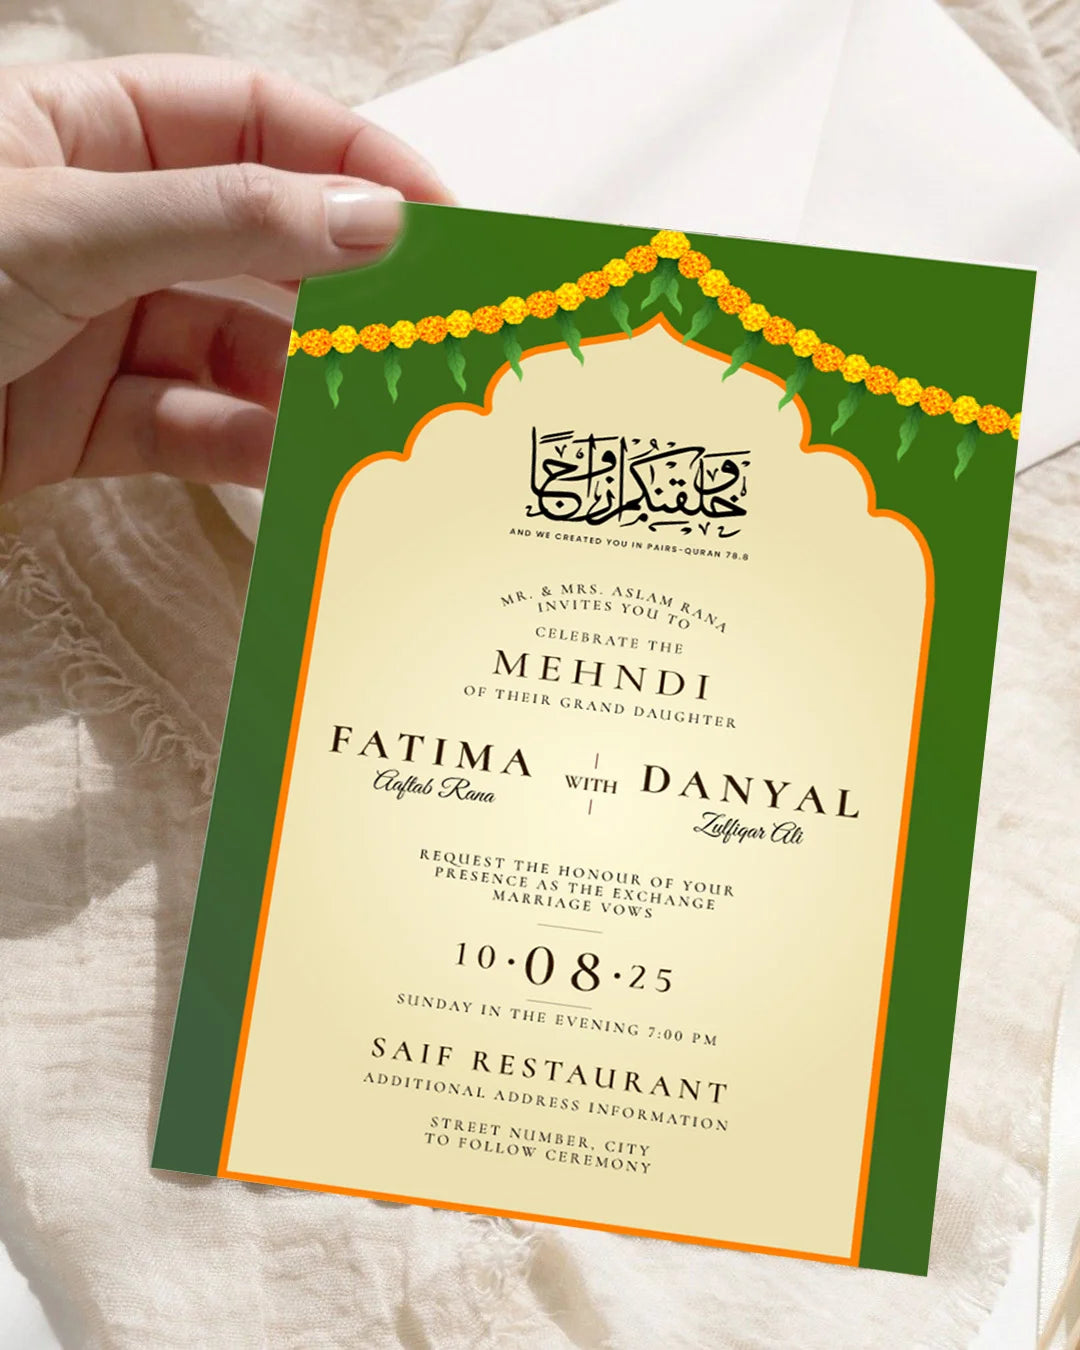 وخلقنكم ازواجًا
AND WE CREATED YOU IN PAIRS-QURAN 78.8
MR. & MRS. ASLAM RANA
INVITES YOU TO
CELEBRATE THE
MEHNDI
OF THEIR GRAND DAUGHTER
FATIMA
Aaftab Rana
WITH
DANYAL
Zulfiqar Ali
REQUEST THE HONOUR OF YOUR
PRESENCE AS THE EXCHANGE
MARRIAGE VOWS
10·08·25
SUNDAY IN THE EVENING 7:00 PM
SAIF RESTAURANT
ADDITIONAL ADDRESS INFORMATION
STREET NUMBER, CITY
TO FOLLOW CEREMONY